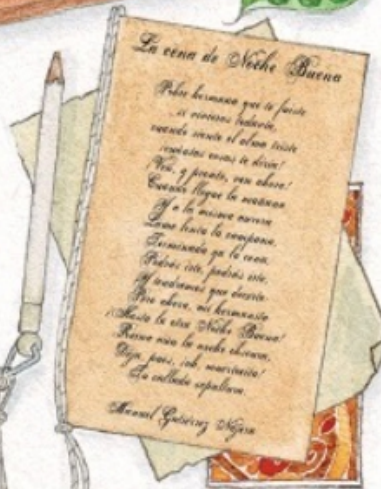 La cena de Noche Buena
Pobre hermana que te fuiste
si vivieras todavía,
cuando siente el alma triste
¡cuántas cosas te diría!
Ven, y pronto, ven ahora!
Cuando llegue la mañana
Y a la misma aurora
llame lenta la campana,
Terminada ya la cena,
Podrás irte, podrás irte.
Y tendremos que decirte.
Pero ahora, mi hermanita
¡Hasta la otra Noche Buena!
Reina más la noche obscura,
Deja, pues, ¡oh, muertecita!
Tu callada sepultura.
Manuel Gutiérrez Nájera